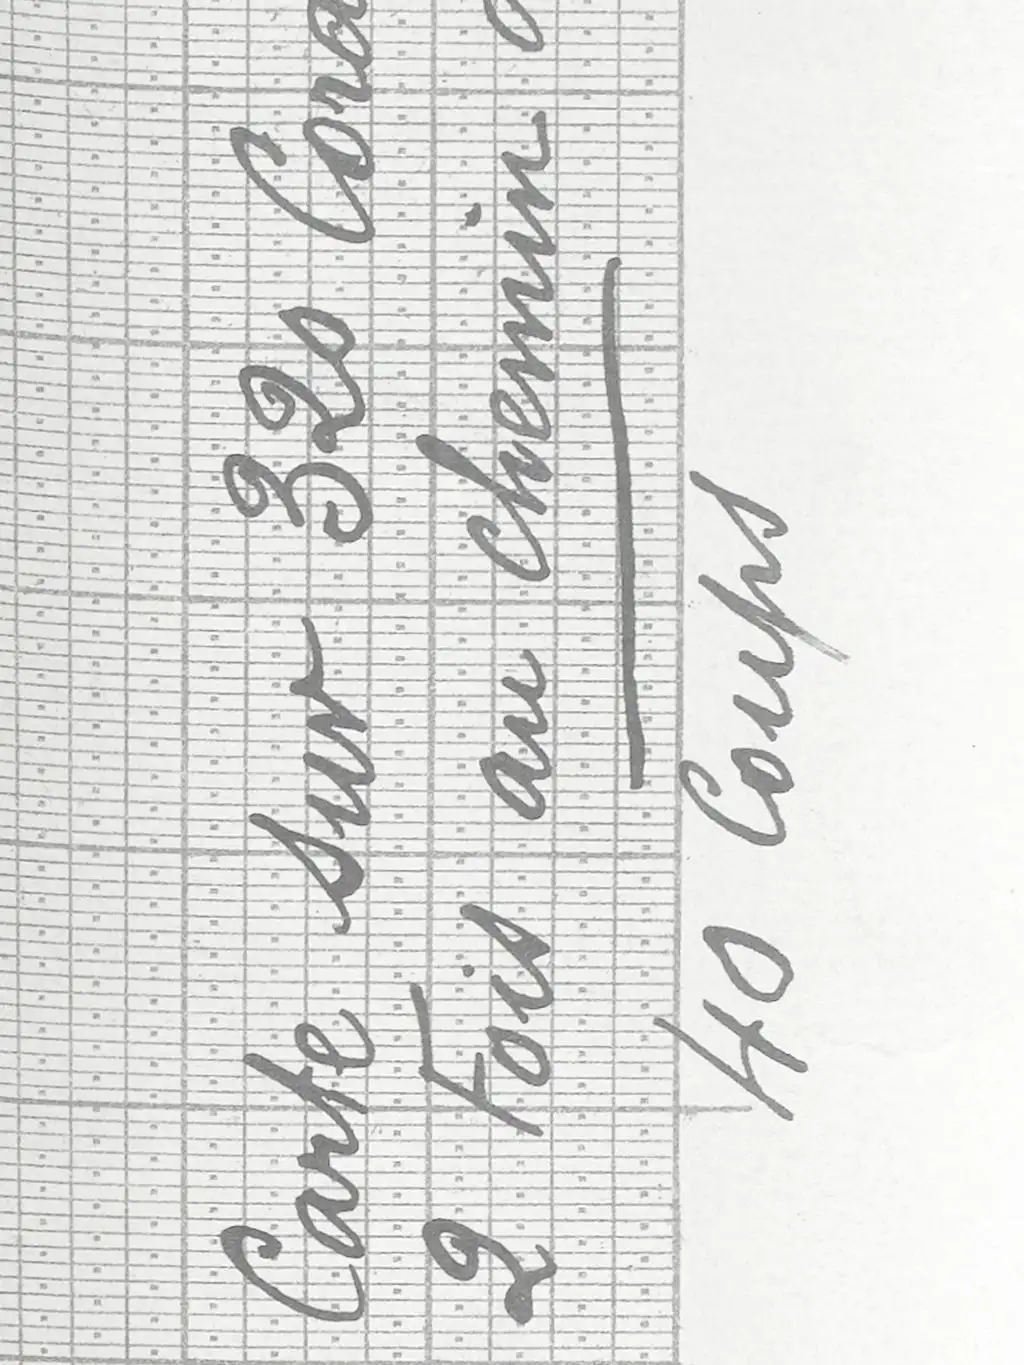 Carte sur 320 Cord
2 Fois au chemin
40 Coups